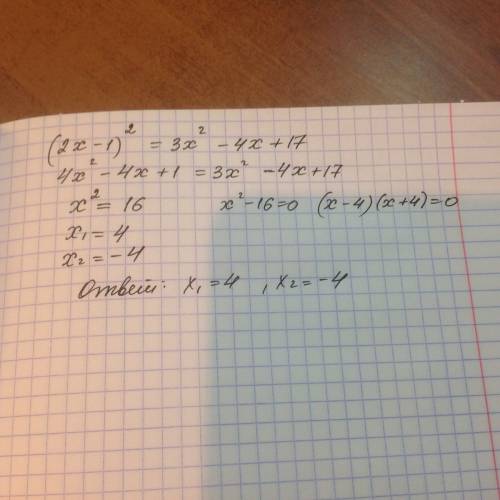 (2x-1)² = 3x² -4x+17
4x²-4x+1 = 3x² -4x+17
x² = 16 x²-16=0 (x-4)(x+4)=0
x₁ = 4
x₂ = -4
Ответ: x₁ =4 , x₂ = -4